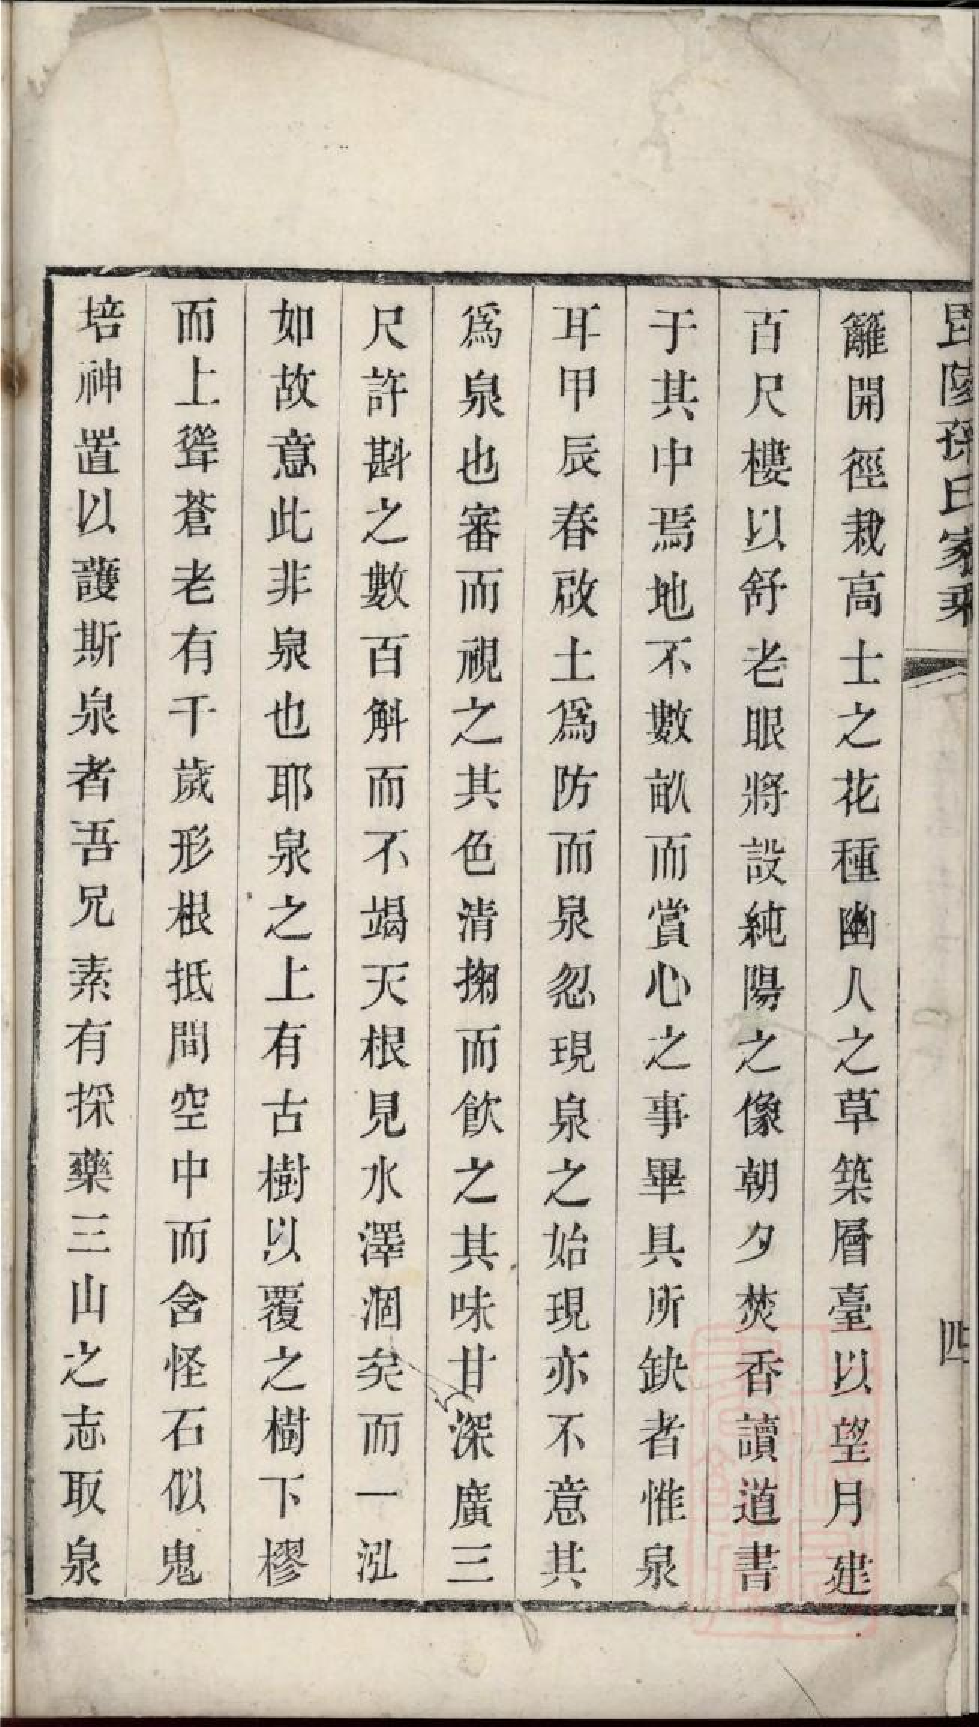 毘陵孫氏家乘
四
籬開徑栽高士之花種幽人之草築層臺以望月建
百尺樓以舒老眼將設純陽之像朝夕焚香讀道書
于其中焉地不數畝而賞心之事畢具所缺者惟泉
耳甲辰春啟土為防而泉忽現泉之始現亦不意其
爲泉也審而視之其色清掬而飲之其味甘深廣三
尺許斟之數百斛而不竭天根見水澤涸矣而一泓
如故意此非泉也耶泉之上有古樹以覆之樹下樛
而上聳蒼老有千歲形根抵間空中而含怪石似鬼
培神置以護斯泉者吾兄素有採藥三山之志取泉